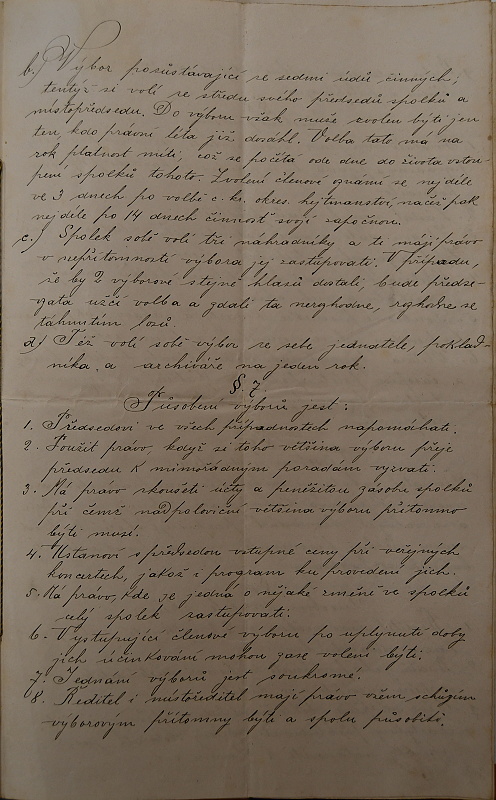 b.) Výbor pozůstávající ze sedmi údů činných;
tentýž si volí ze středu svého předsedů spolků a
místopředsedu. Do výboru však může zvolen býti jen
ten, kdo právní léta již dosáhl. Volba tato má na
rok platnost míti, což se počítá ode dne do života vstou-
pení spolků tohoto. Zvolení členové oznámí se nejdéle
ve 3 dnech po volbě c. ks. okres. hejtmanství, načež pak
nejdéle po 14 dnech činnost svojí započnou.
c.) Spolek sobě volí tři náhradníky a ti mají právo
v nepřítomnosti výbora jej zastupovati. V případu,
že by 2 výborové stejně hlasů dostali, bude předse-
gata užší volba a gdali ta nerozhodne, rozhodne se
táhnutím losů.
d) Též volí sobě výbor ze sebe jednatele, poklad-
níka a archiváře na jeden rok.
§. 7.
Působení výborů jest:
1. Předsedovi ve všech případnostech napomáhati.
2. Použít právo, když si toho většina výboru přeje
předsedu k mimořádným poradám vyzvati.
3. Má právo zkoušeti účty a peněžitou zásobu spolků
při čemž nadpoloviční většina výboru přítomno
býti musí.
4. Ustanoví s předsedou vstupné ceny při veřejných
koncertech, jakož i program ku provedení jich.
5. Má právo, kde se jedná o nějaké změně ve spolků
celý spolek zastupovati.
6. Vystupující členové výboru po uplynutí doby
jich účinkování mohou zase volení býti.
7. Jednání výborů jest soukromé.
8. Ředitel i místoředitel mají právo všem schůzím
výborovým přítomny býti a spolu působiti.